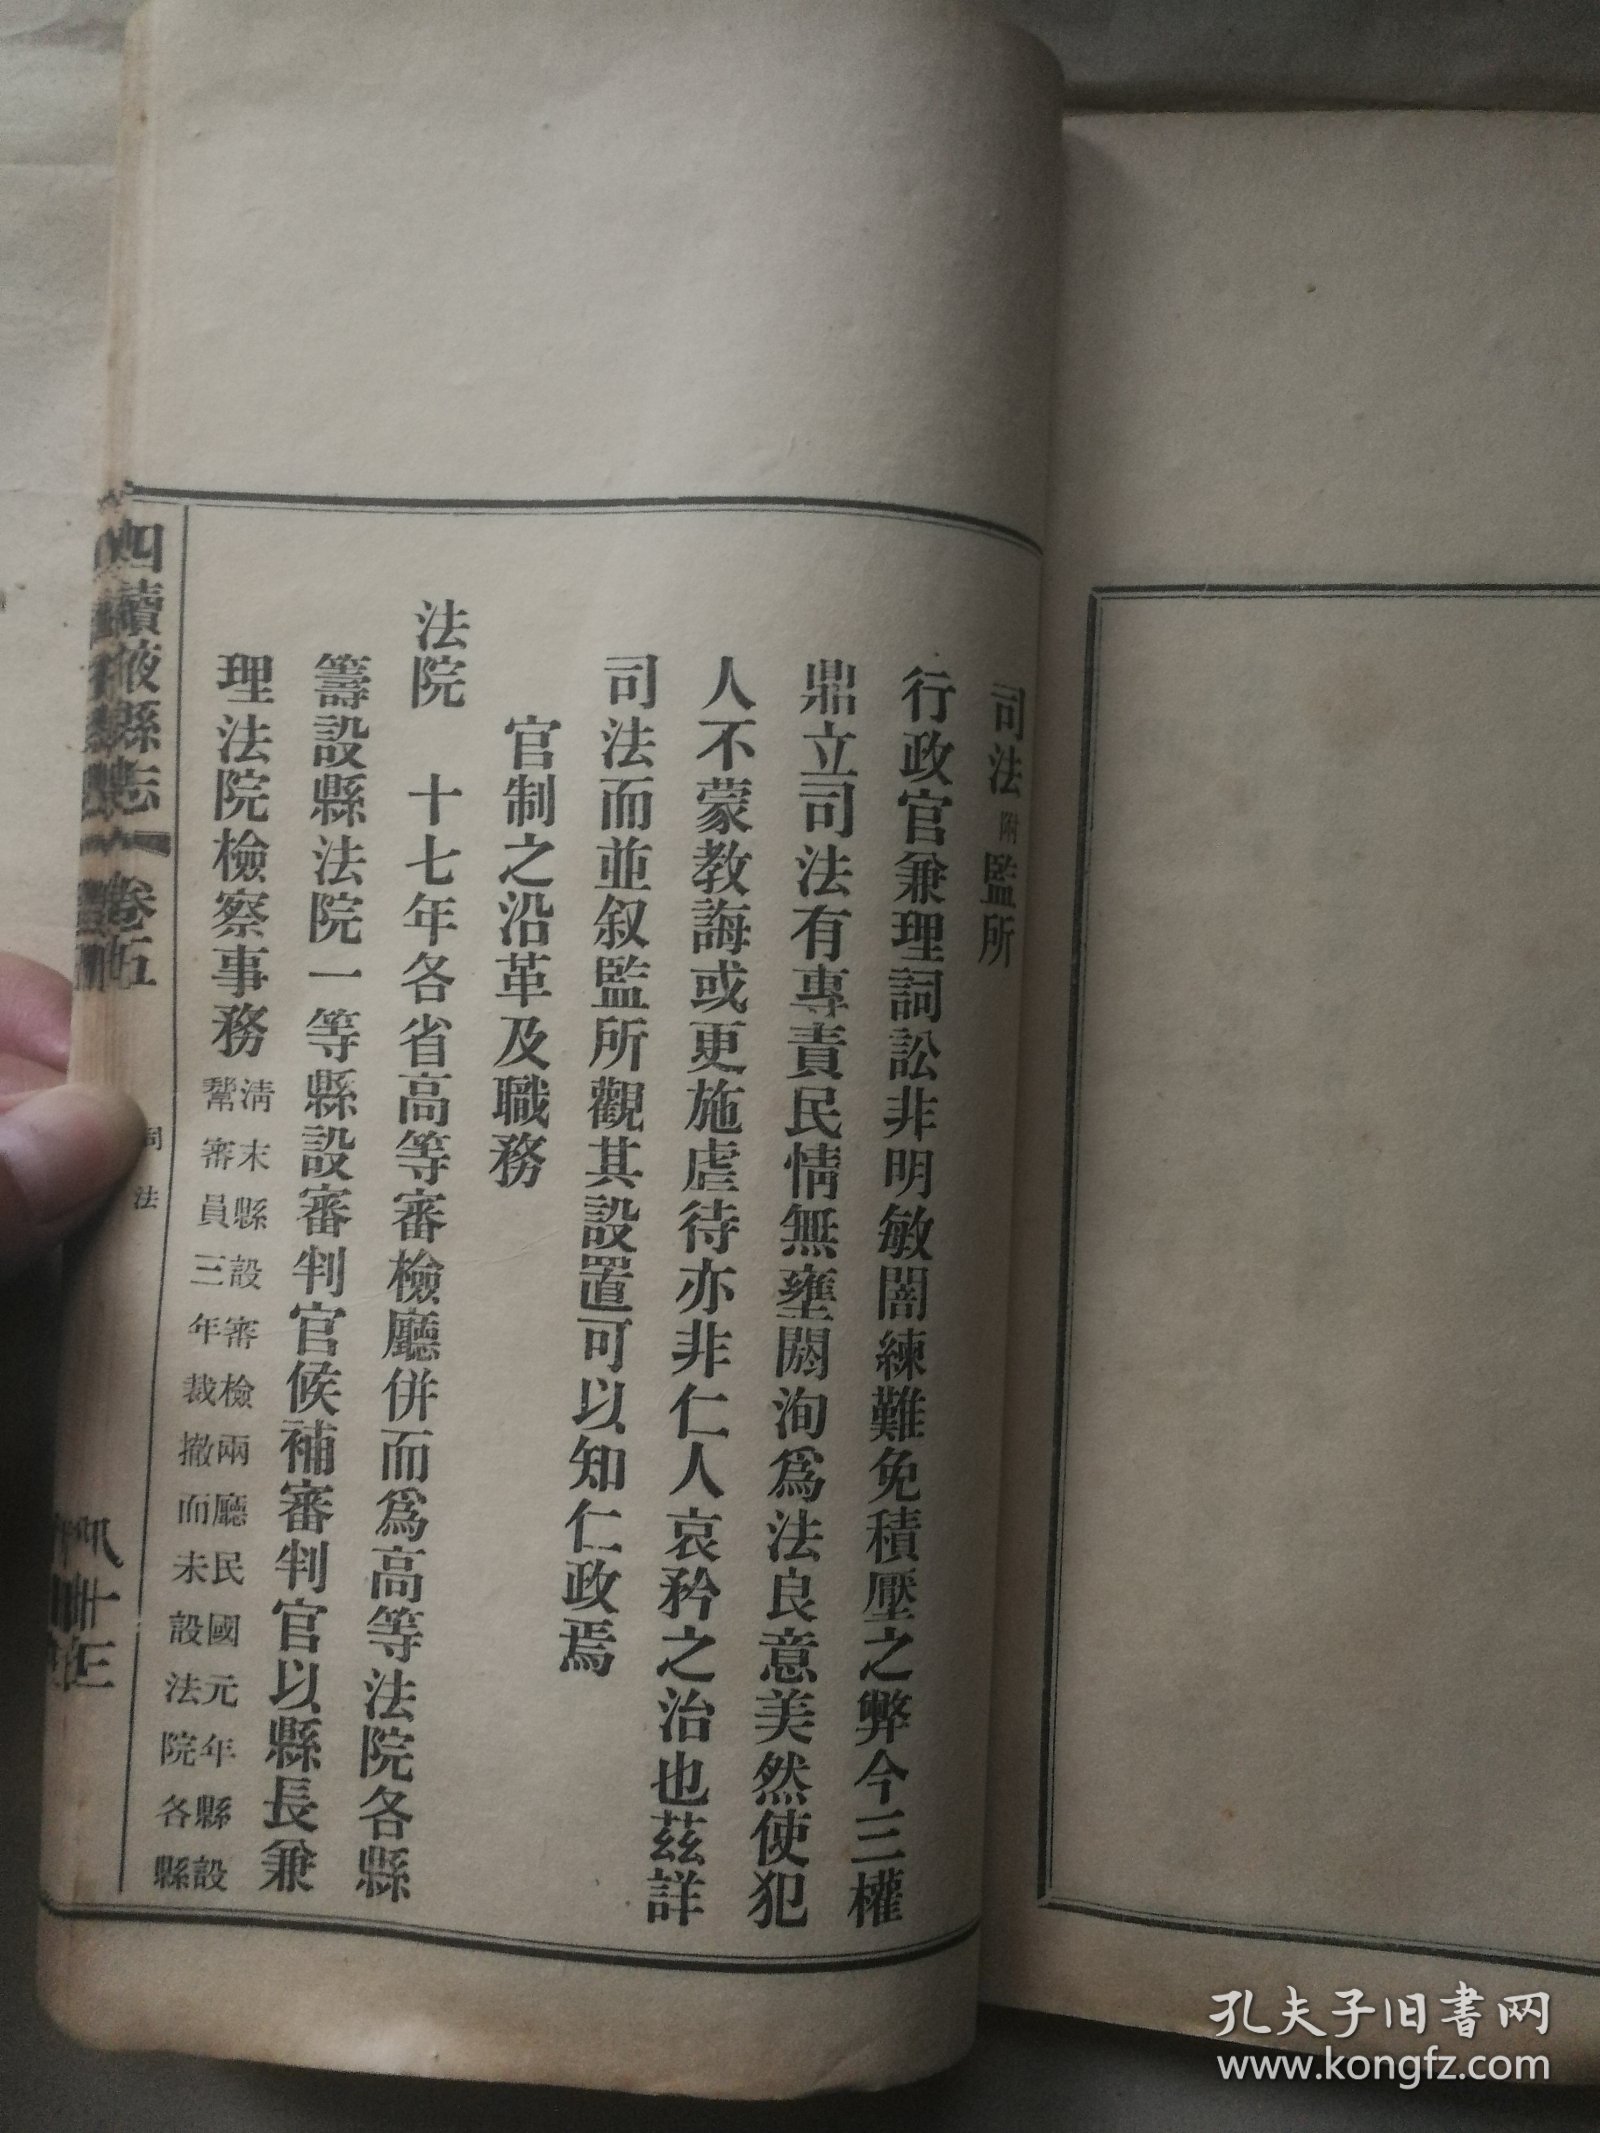 司法附監所
行政官兼理詞訟非明敏闇練難免積壓之弊今三權
鼎立司法有專責民情無壅閼洵爲法良意美然使犯
人不蒙教誨或更施虐待亦非仁人哀矜之治也茲詳
司法而並叙監所觀其設置可以知仁政焉
官制之沿革及職務
法院 十七年各省高等審檢廳併而爲高等法院各縣
籌設縣法院一等縣設審判官候補審判官以縣長兼
理法院檢察事務
清末縣設審檢兩廳民國元年縣設
幫審員三年裁撤而未設法院各縣
四續掖縣志 卷五
司法
孔夫子旧书网
www.kongfz.com